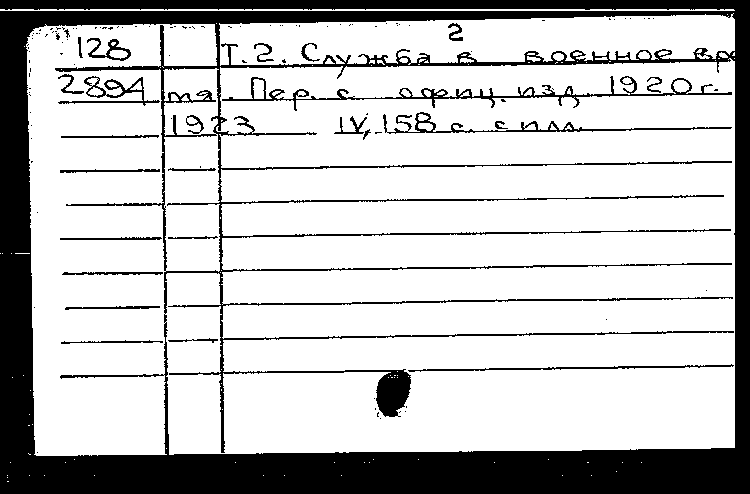 2
128 Т.2. Служба в военное вре
2894 мя. Пер. с офиц. изд 1920г.
1923 IV, 158 с. с илл.